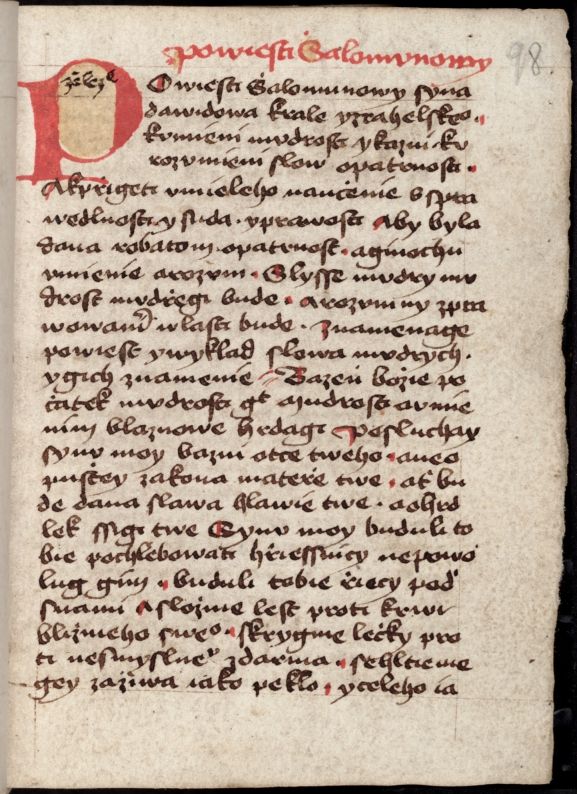 powiesti Salomunowy
98
P
OWiesti Salomunowy syna
dawidowa krale yzrahelskeo.
kumieni mudrosti ykazni. ku
rozumieni slow opatrnosti.
Akprigeti umieleho naučenie a spra
wedlnosti. y suda. yprawosti Aby byla
dana robatom. opatrnost. aginochu
umienie arozum. Slysse mudry mu
drost mudřegi bude. arozumny zpra
wowani wlasti bude. znamenage
powiest ywyklad slowa mudrych.
ygich znamenie Bazeň bozie po
čatek mudrosti gt Mudrosti aumie
nim blaznowe hrdagi Posluchay
synu moy bazni otce tweho. aneo
pustey zakona mateře twe. ať bu
de dana slawa hlawie twe. aohrd
lek ssigi twe Synu moy buduli to
bie pochlebowati hřiessnicy nepowo
lug gim. buduli tobie řiecy pod
snami Aslozme lest proti krwi
bliznieho sweo. skrygme lečky pro
ti nesmyslneu zdarma. sehltieme
gey zaziwa iako peklo. yceleho ia